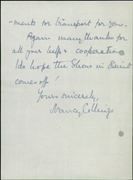 -ments for transport for you.
Again many thanks for
all your help & cooperation
I do hope the Show in Detroit
comes off!
Yours sincerely,
Nancy Collings